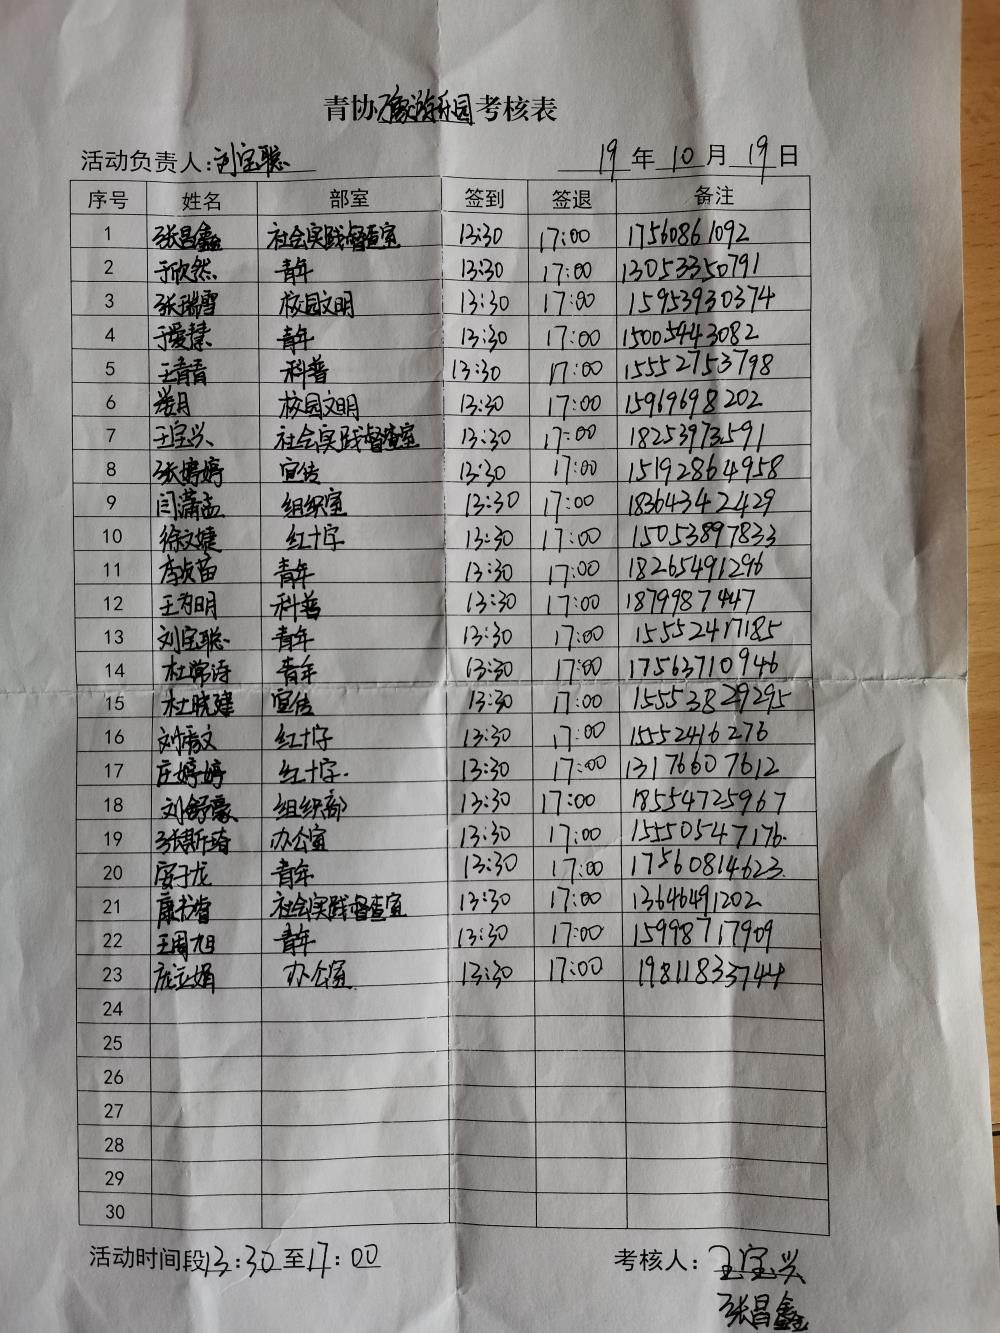 青协 游乐园考核表
活动负责人:刘宝聪 19年10月19日
序号 姓名 部室 签到 签退 备注
1 张昌鑫 社会实践督查室 13:30 17:00 17560861092
2 于欣然 青年 13:30 17:00 13053350791
3 张瑞雪 校园文明 13:30 17:00 15953930374
4 于爱慧 青年 13:30 17:00 15005443082
5 王青青 科普 13:30 17:00 15552753798
6 校园文明 13:30 17:00 15969698202
7 王宝兴 社会实践督查室 13:30 17:00 18253973591
8 张婷婷 宣传 13:30 17:00 15192864958
9 闫潇孟 组织室 13:30 17:00 18364342429
10 徐文婕 红十字 13:30 17:00 15053897833
11 李贞苗 青年 13:30 17:00 18265491296
12 王为明 科普 13:30 17:00 1879987447
13 刘宝聪 青年 13:30 17:00 15552417185
14 杜常涛 青年 13:30 17:00 17563710946
15 杜晓建 宣传 13:30 17:00 15553829295
16 红十字 13:30 17:00 15552416276
17 庄婷婷 红十字 13:30 17:00 13176607612
18 刘舒豪 组织部 13:30 17:00 18554725967
19 张斯琦 办公室 13:30 17:00 15550547176
20 安于龙 青年 13:30 17:00 17560814623
21 康书睿 社会实践督查室 13:30 17:00 13646491202
22 王周旭 青年 13:30 17:00 15998717909
23 庞立娟 办公室 13:30 17:00 19811833744
24
25
26
27
28
29
30
活动时间段13:30至17:00 考核人:王宝兴
张昌鑫